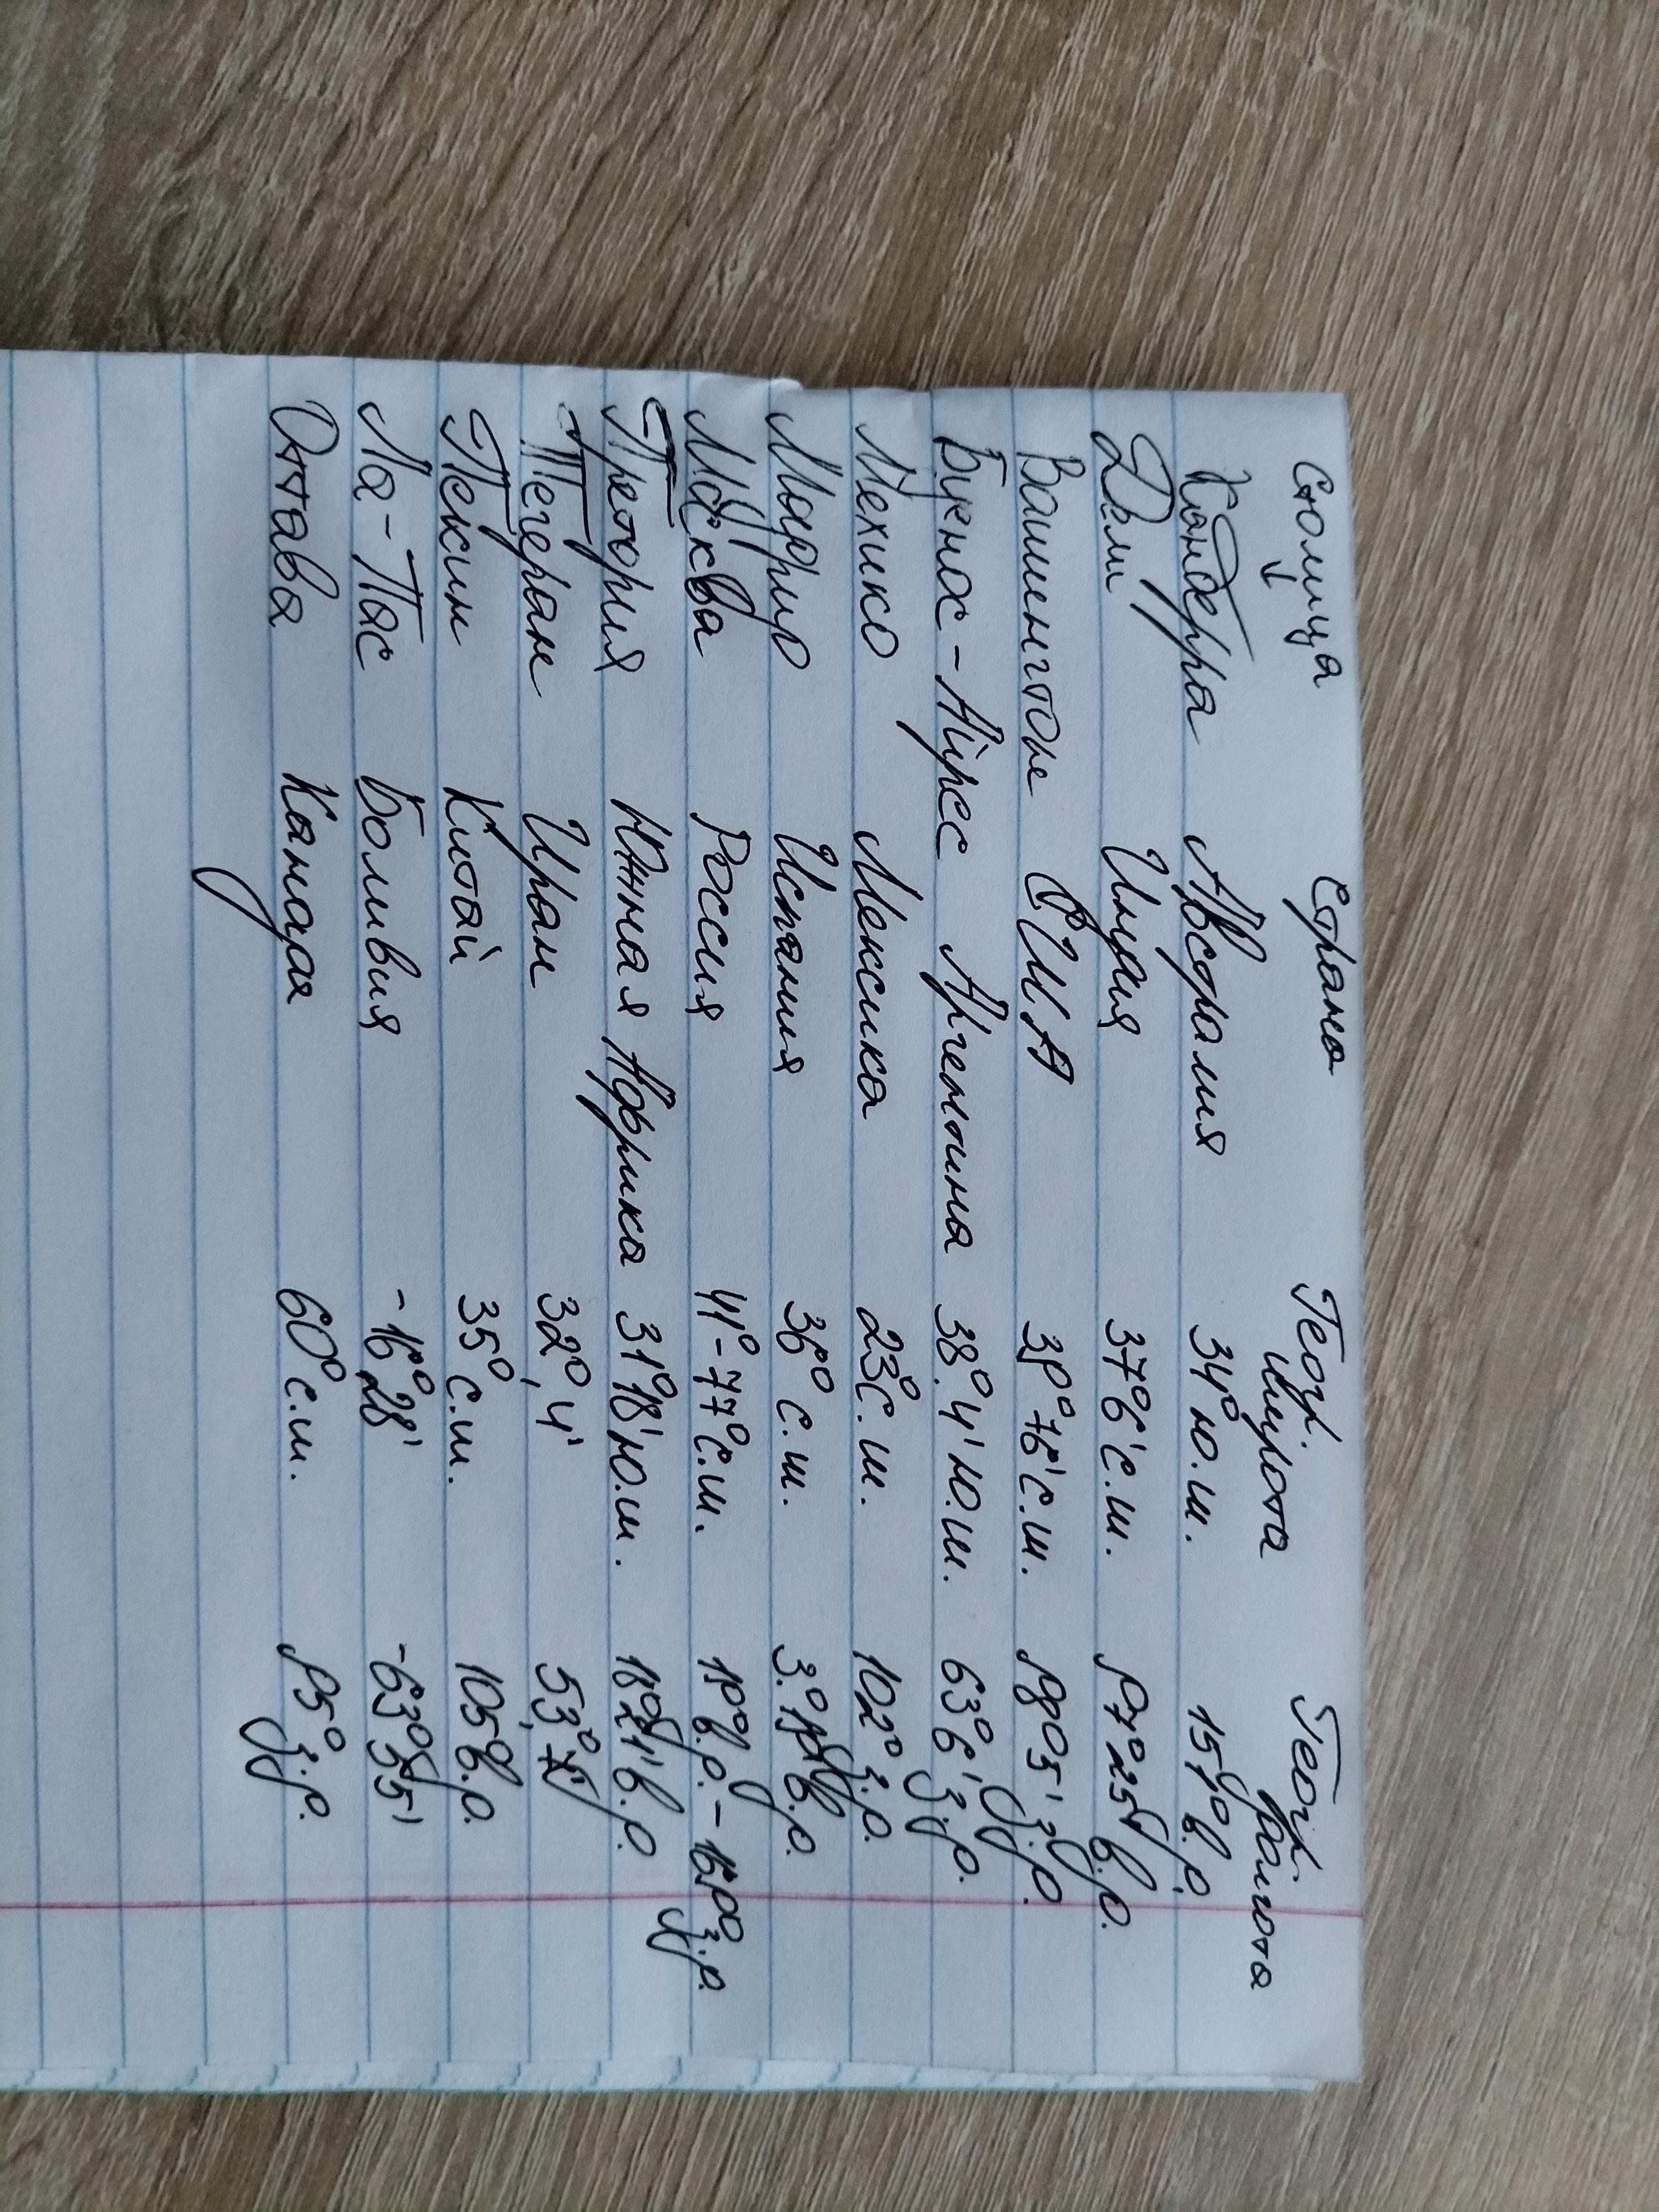 Столица Страна Геогр. широта Геогр. долгота
Канберра Австралия 34° ю.ш. 151° в.д.
Дели Индия 37°6' с.ш. 97°25' в.д.
Вашингтон США 39°76' с.ш. 98°5' з.д.
Буэнос-Айрес Аргентина 38°4' ю.ш. 63°6' з.д.
Мехико Мексика 23° с.ш. 102° з.д.
Мадрид Испания 36° с.ш. в.д.
Москва Россия 41°-77° с.ш. 19° в.д. - 169° з.д.
Претория Южная Африка 31°18' ю.ш. 18°21' в.д.
Тегеран Иран 32°,4' 53°,
Пекин Китай 35° с.ш. 105° в.д.
Ла-Пас Боливия -16°28' -63°55'
Оттава Канада 60° с.ш. 95° з.д.